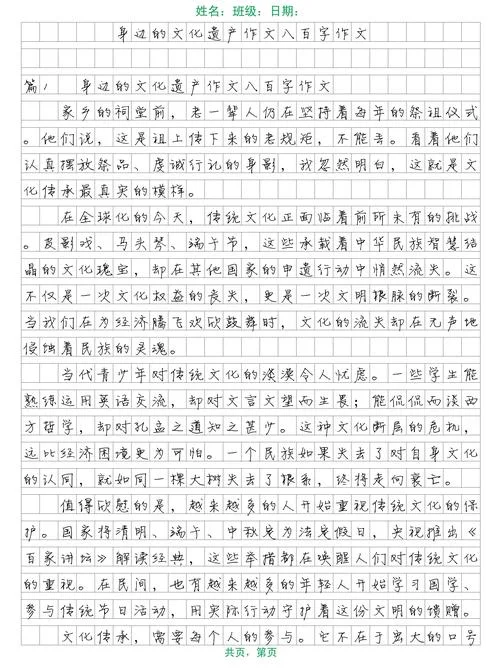 姓名：班级：日期：
身边的文化遗产作文八百字作文
篇1 身边的文化遗产作文八百字作文
家乡的祠堂前，老一辈人仍在坚持着每年的祭祖仪式
。他们说，这是祖上传下来的老规矩，不能丢。看着他们
认真摆放祭品、虔诚行礼的身影，我忽然明白，这就是文
化传承最真实的模样。
在全球化的今天，传统文化正面临着前所未有的挑战
。皮影戏、马头琴、端午节，这些承载着中华民族智慧结
晶的文化瑰宝，却在其他国家的申遗行动中悄然流失。这
不仅是一次文化权益的丧失，更是一次文明根脉的断裂。
当我们在为经济腾飞欢欣鼓舞时，文化的流失却在无声地
侵蚀着民族的灵魂。
当代青少年对传统文化的淡漠令人忧虑。一些学生能
熟练运用英语交流，却对文言文望而生畏；能侃侃而谈西
方哲学，却对孔孟之道知之甚少。这种文化断层的危机，
远比经济困境更为可怕。一个民族如果失去了对自身文化
的认同，就如同一棵大树失去了根系，终将走向衰亡。
值得欣慰的是，越来越多的人开始重视传统文化的保
护。国家将清明、端午、中秋定为法定假日，央视推出《
百家讲坛》解读经典，这些举措都在唤醒人们对传统文化
的重视。在民间，也有越来越多的年轻人开始学习国学、
参与传统节日活动，用实际行动守护着这份文明的馈赠。
文化传承，需要每个人的参与。它不在于宏大的口号
共页，第页